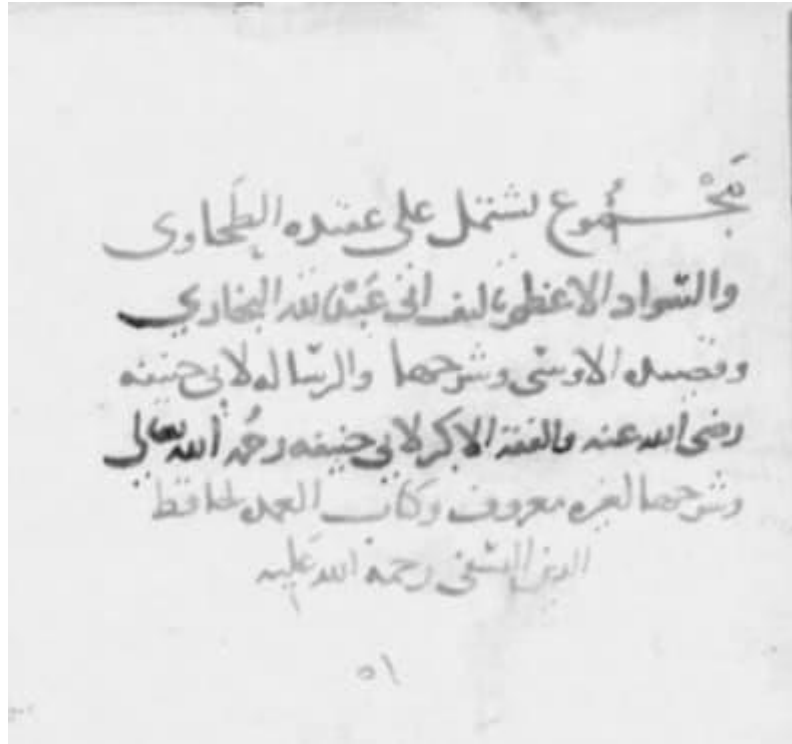 مَجْمُوع يشتمل على عقيدة الطَحاوى
والسّواد الاعظم تاليف ابى عَبْد الله البخاري
وقصيده الاوشى وشرحها والرسّاله لابى حنيفه
رضى الله عنه والفقه الاكبر لابى حنيفه رحمُه الله تعالى
وشرحها لغيره معروف وكتاب العمده لحافظ
الدين النسَفى رحمة الله عَليه
٥١